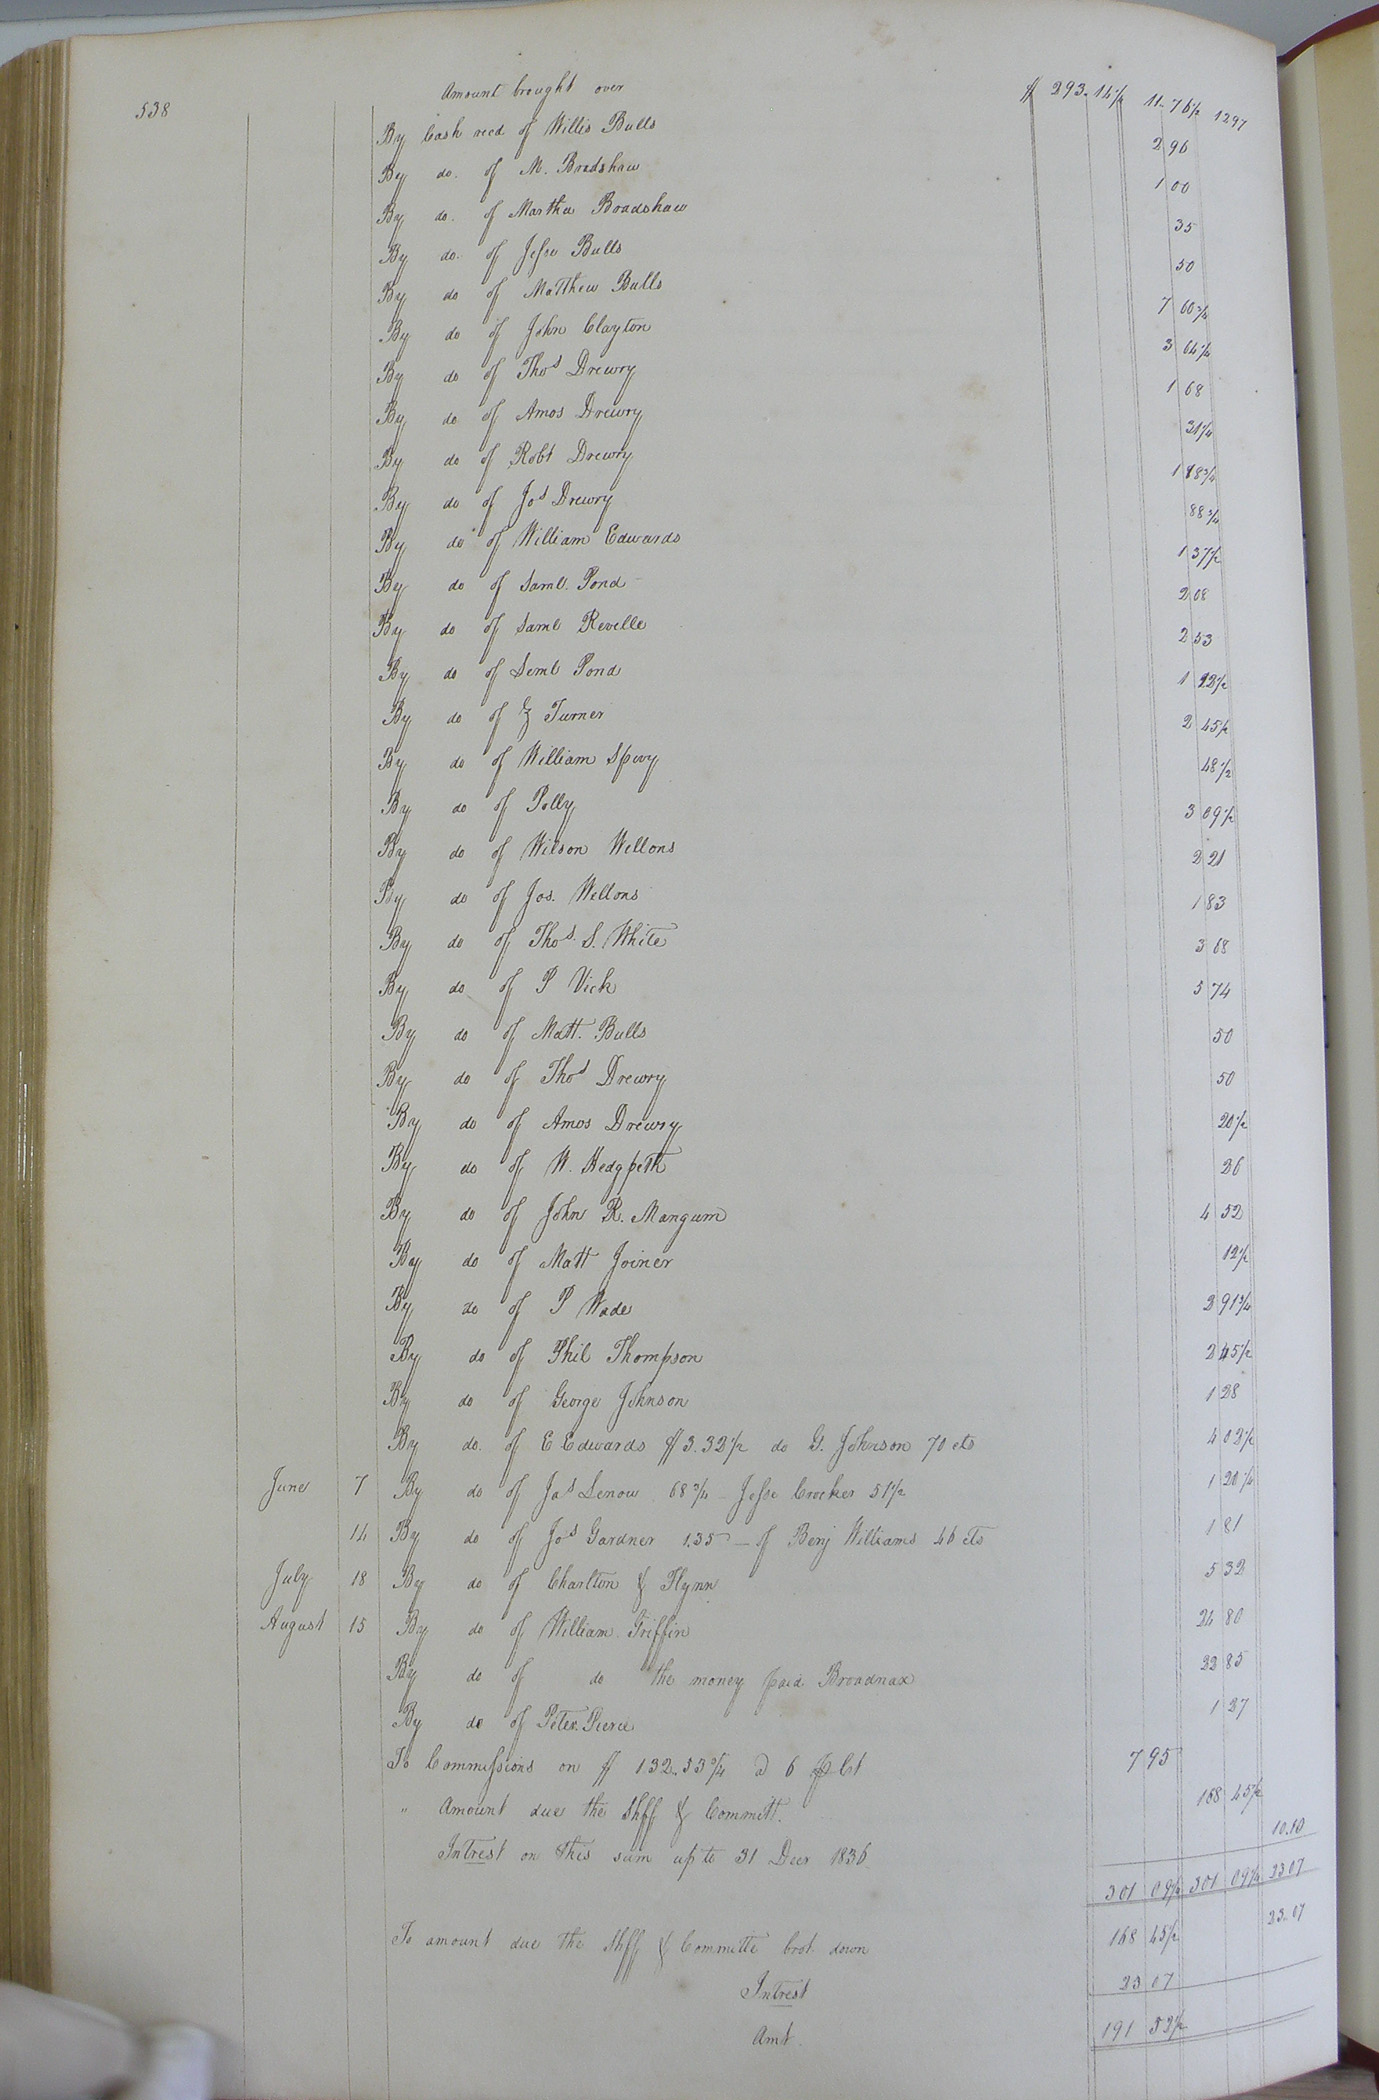 538
Amount brought over $ 293.14 1/2 11.76 1/2 1297
By Cash recd of Willis Bulls 2 96
By do. of M. Bradshaw 1 00
By do. of Martha Bradshaw 35
By do. of Jesse Bulls 50
By do of Matthew Bulls 7 60 3/4
By do of John Clayton 3 64 1/4
By do of Thos Drewry 1 68
By do of Amos Drewry 31 1/4
By do of Robt Drewry 1 88 3/4
By do of Jos Drewry 88 3/4
By do of William Edwards 1 37 1/2
By do of Saml. Pond 2 08
By do of Saml Revelle 2 53
By do of Seml Pond 1 22 1/2
By do of & Turner 2 45 1/2
By do of William Spivy 48 1/2
By do of Polly 3 09 1/2
By do of Wilson Wellons 2 21
By do of Jos. Wellons 1 83
By do of Thos. S. White 3 68
By do of P Vick 5 74
By do of Matt. Bulls 50
By do of Thos Drewry 50
By do of Amos Drewry 20 1/2
By do of W. Hedgpeth 26
By do of John R. Mangum 4 52
By do of Matt Joiner 12 1/2
By do of P Wade 2 91 3/4
By do of Phil Thompson 2 45 1/2
By do of George Johnson 1 28
By do. of E Edwards $3.32 1/2 do G. Johnson 70 cts 4 02 1/2
June 7 By do of Jas Lenow 68 3/4 Jesse Crocker 51 1/2 1 20 1/4
14 By do of Jos Gardner 1.35 — of Benj Williams 46 cts 1 81
July 18 By do of Charlton & Flynn 5 32
August 15 By do of William Griffin 24 80
By do of do the money paid Broadnax 22 85
By do of Peter Pierce 1 27
To Commissions on $ 132.53 3/4 @ 6 p Ct 7 95
" Amount due the Shff & Committ. 168 45 1/2
Intrest on this sum up to 31 Decr 1836 10.10
301 09 1/2 301 09 1/2 23 07
23.07
To amount due the Shff & Committe brot down 168 45 1/2
Intrest 23 07
Amt. 191 52 1/2